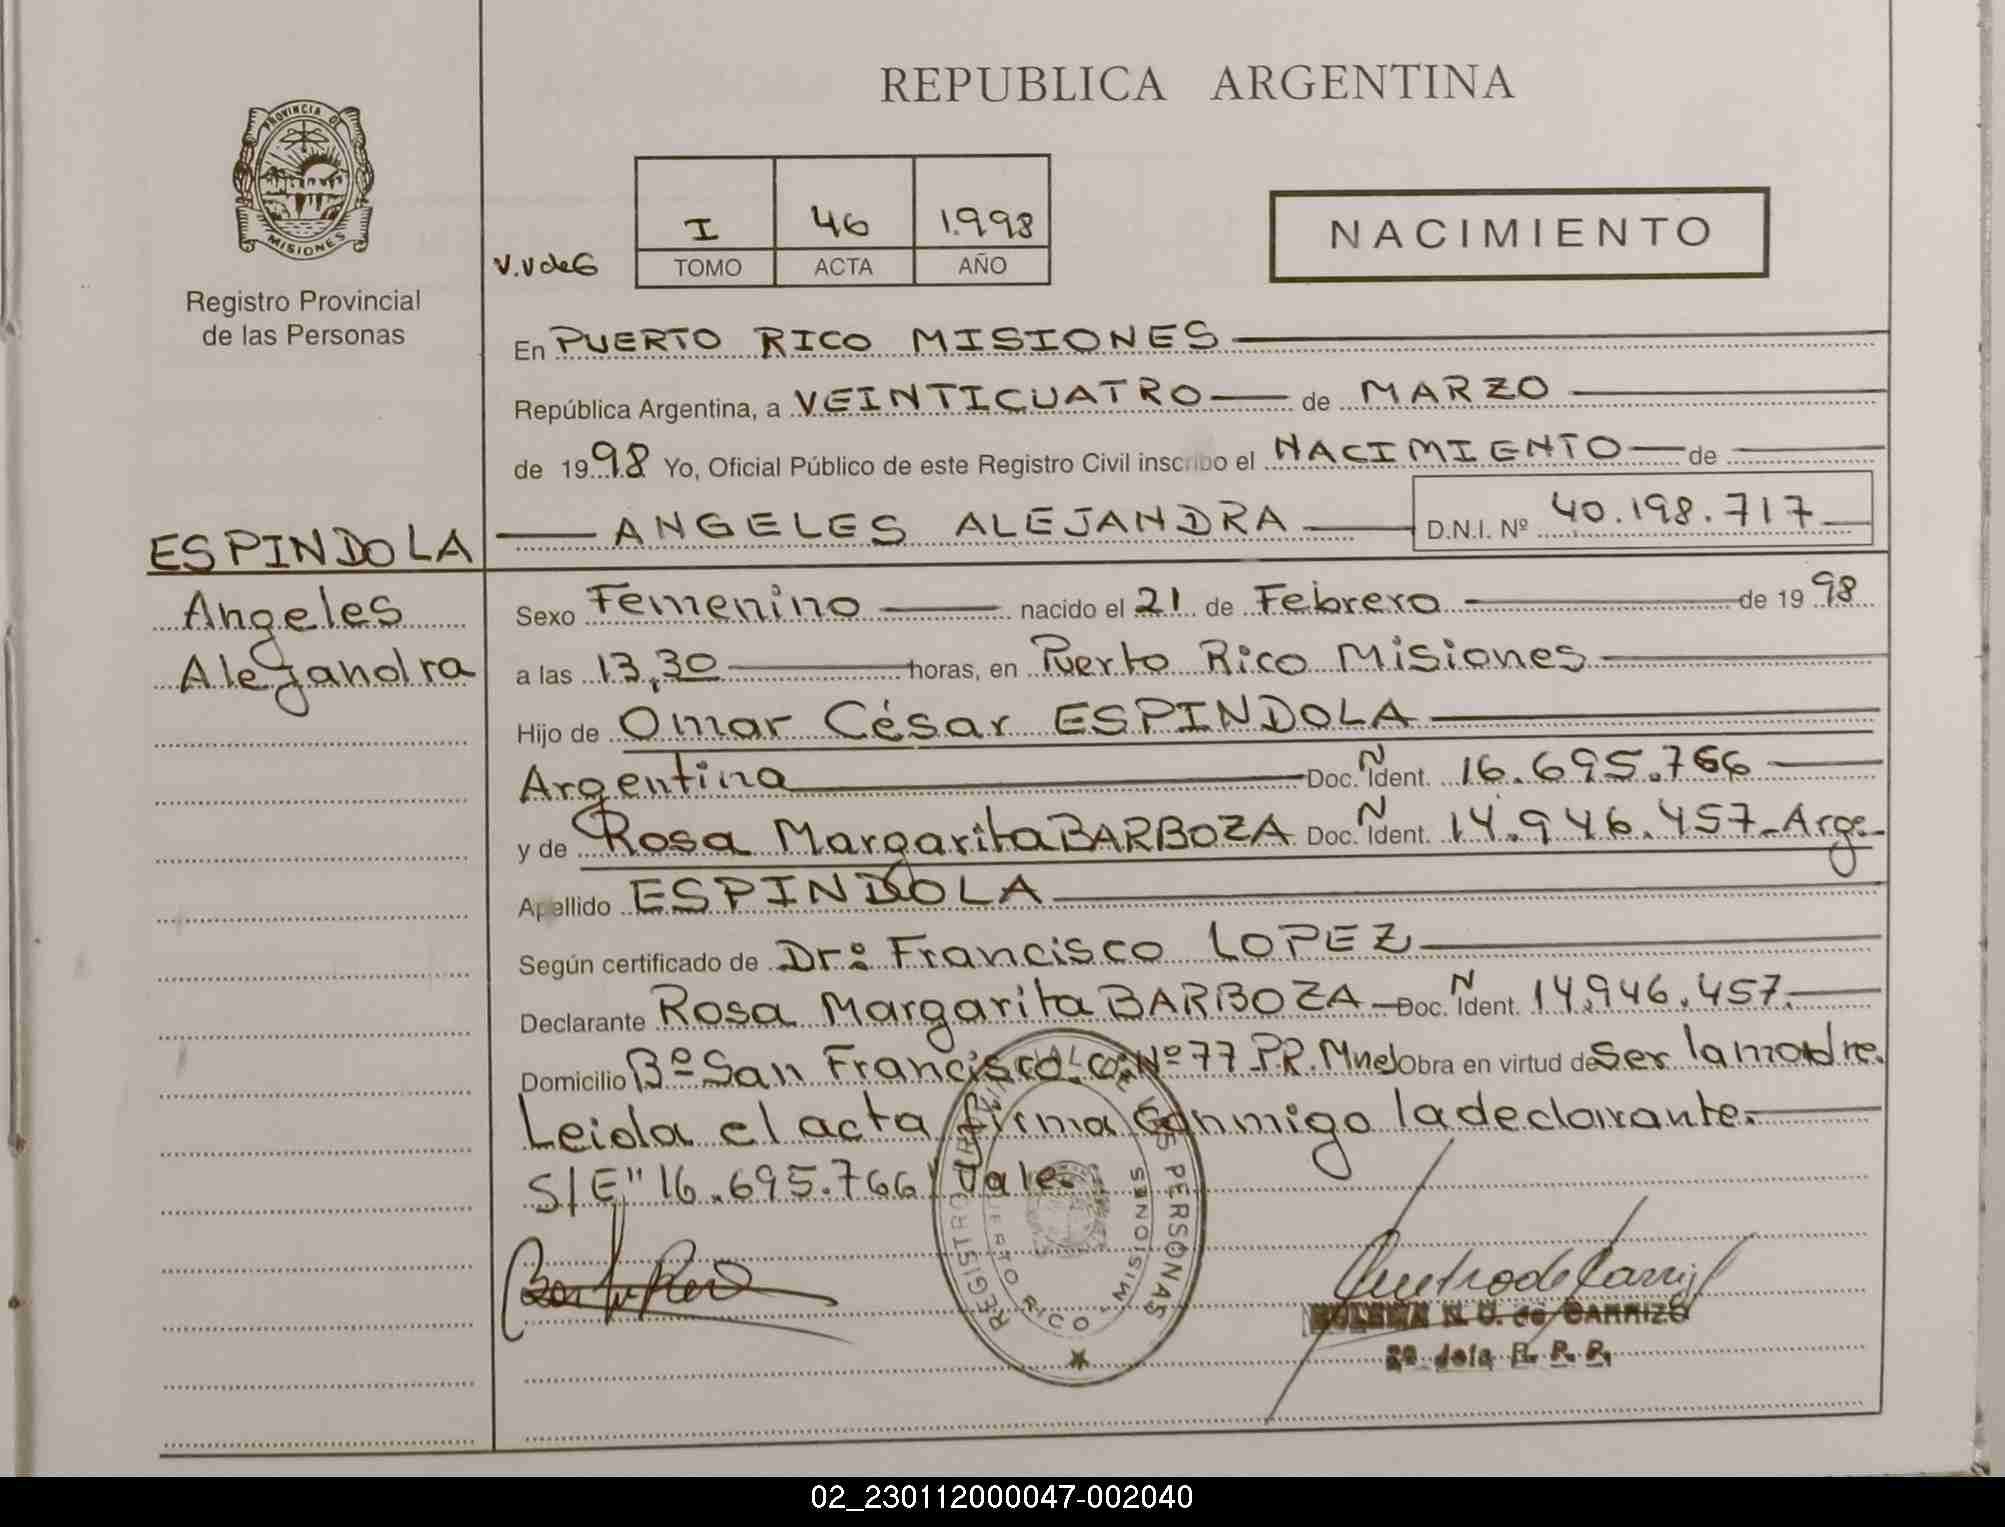 REPUBLICA ARGENTINA
PROVINCIA DE
MISIONES
Registro Provincial
de las Personas
V.V de G
I 46 1.998
TOMO ACTA AÑO
NACIMIENTO
En PUERTO RICO MISIONES
República Argentina, a VEINTICUATRO de MARZO
de 1998 Yo, Oficial Público de este Registro Civil inscribo el NACIMIENTO de
ESPINDOLA
ANGELES ALEJANDRA D.N.I. Nº 40.198.717
Angeles
Alejandra
Sexo Femenino nacido el 21 de Febrero de 1998
a las 13,30 horas, en Puerto Rico Misiones
Hijo de Omar César ESPINDOLA
Argentina Doc. N Ident. 16.695.766
y de Rosa Margarita BARBOZA Doc. N Ident. 14.946.457 - Arg.
Apellido ESPINDOLA
Según certificado de Dr: Francisco LOPEZ
Declarante Rosa Margarita BARBOZA Doc. N Ident. 14.946.457.
Domicilio Bº San Francisco Nº 77 P.R. Mnes Obra en virtud de Ser la madre.
Leida el acta firma conmigo la declarante.
S/E "16.695.766" Vale.
REGISTRO PROVINCIAL DE LAS PERSONAS
PUERTO RICO - MISIONES
N. U. de CARRIZO
R. P. P.
02_230112000047-002040